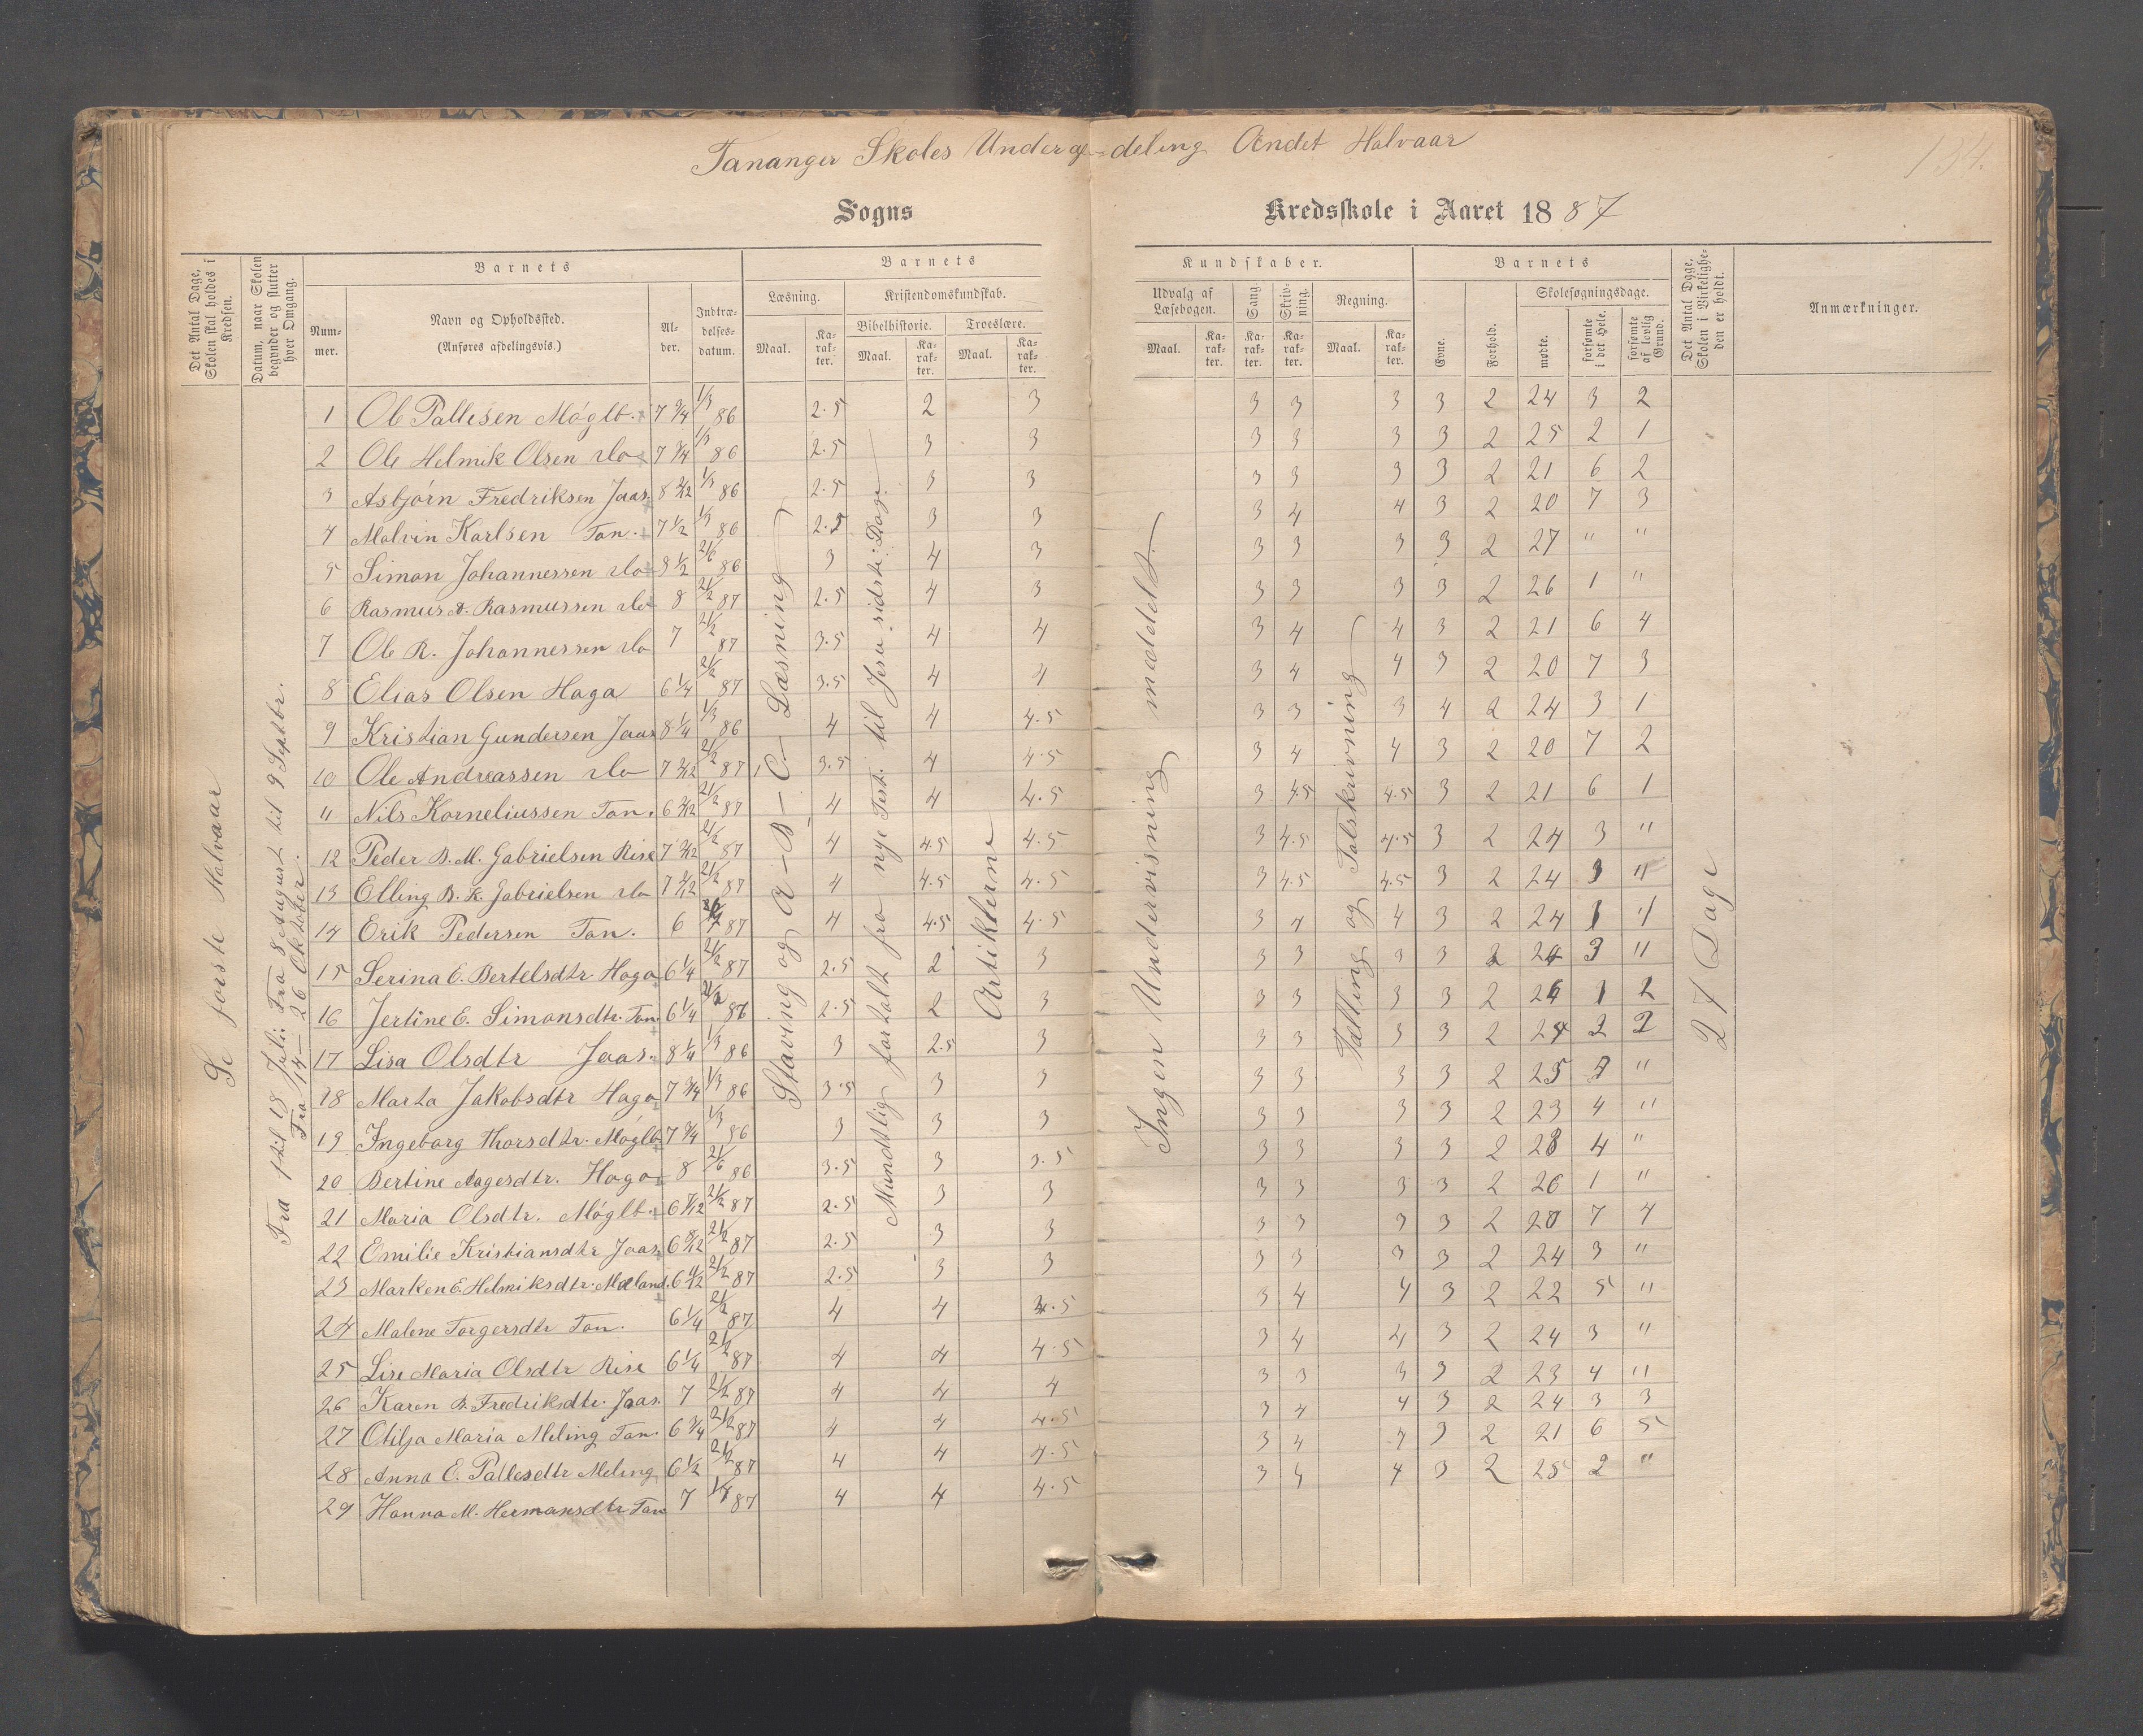 Tananger Skoles Underafdeling Andet Halvaar
134.
Sogns Kredsskole i Aaret 1887
Det Antal Dage, Skolen skal holdes i Kredsen.
Datum, naar Skolen begynder og slutter hver Omgang.
Barnets
Nummer.
Navn og Opholdssted. (Anføres afdelingsvis.)
Alder.
Indtrædelsesdatum.
Barnets Kundskaber.
Læsning. Maal. Karakter.
Kristendomskundskab.
Bibelhistorie. Maal. Karakter.
Troeslære. Maal. Karakter.
Udvalg af Læsebogen. Maal. Karakter.
Sang. Karakter.
Skrivning. Karakter.
Regning. Maal. Karakter.
Barnets
Evne.
Forhold.
Skolesøgningsdage.
mødte.
forsømte i det Hele.
forsømte af lovlig Grund.
Det Antal Dage, Skolen i Virkeligheden er holdt.
Anmærkninger.
Se første Halvaar
Fra 1 til 18 Juli: Fra 8 August til 9 Septbr.
Fra 14 – 26 Oktober.
Stavning og A-B-C- Læsning
Mundtlig fortalt fra nye Test. til Jesu sidste Dage
Artiklerne
Ingen Undervisning meddelt.
Tælling og Talskrivning
27 Dage
1 Ole Pallesen Møglb. 7 3/4 1/3 86 2.5 2 3 3 3 3 3 2 24 3 2
2 Ole Helmik Olsen do 7 3/4 1/3 86 2.5 3 3 3 3 3 3 2 25 2 1
3 Asbjørn Fredriksen Jaas. 8 2/12 1/3 86 2.5 3 3 3 3 3 3 2 21 6 2
4 Malvin Karlsen Tan. 7 1/2 1/3 86 2.5 3 3 3 4 4 3 2 20 7 3
5 Simon Johannessen do 8 1/2 21/6 86 3 4 3 3 3 3 3 2 27 " "
6 Rasmus A. Rasmussen do 8 21/2 87 2.5 4 3 3 3 3 3 2 26 1 "
7 Ole R. Johannessen do 7 21/2 87 3.5 4 4 3 4 4 3 2 21 6 4
8 Elias Olsen Haga 6 1/4 21/2 87 3.5 4 4 3 4 4 3 2 20 7 3
9 Kristian Gundersen Jaas 8 1/4 1/3 86 4 4 4.5 3 3 3 4 2 24 3 1
10 Ole Andreassen do 7 2/12 21/2 87 3.5 4 4.5 3 4 4 3 2 20 7 2
11 Nils Korneliussen Tan. 6 2/12 21/2 87 4 4 4.5 3 4.5 4.5 3 2 21 6 1
12 Peder B. M. Gabrielsen Risa 7 2/12 21/2 87 4 4.5 4.5 3 4.5 4.5 3 2 24 3 "
13 Elling B. K. Gabrielsen do 7 2/12 21/2 87 4 4.5 4.5 3 4.5 4.5 3 2 24 3 "
14 Erik Pedersen Tan. 6 87 4 4.5 4.5 3 4 4 3 2 24 1 1
15 Serina E. Bertelsdtr. Haga 6 1/4 21/2 87 2.5 2 3 3 3 3 3 2 24 3 "
16 Jertine E. Simonsdtr. Tan. 6 1/4 86 2.5 2 3 3 3 3 3 2 26 1 2
17 Lisa Olsdtr Jaas. 8 1/4 1/3 86 3 2.5 3 3 3 3 3 2 24 2 2
18 Marta Jakobsdtr Haga 7 3/4 1/3 86 3.5 3 3 3 3 3 3 2 25 "
19 Ingeborg Thorsdtr. Møglb. 7 3/4 1/3 86 3 3 3 3 3 3 3 2 23 4 "
20 Bertine Aagesdtr. Haga 8 21/6 86 3.5 3 3.5 3 3 3 3 2 23 4 "
21 Maria Olsdtr. Møglb. 6 7/12 21/2 87 2.5 3 3 3 3 3 3 2 26 1 "
22 Emilie Kristiansdtr Jaas. 6 8/12 21/2 87 2.5 3 3 3 3 3 3 2 20 7 4
23 Marken E. Helmiksdtr. Mæland. 6 11/12 21/2 87 2.5 3 3 3 3 3 3 2 24 3 "
24 Malene Torgersdtr Tan. 6 1/4 21/2 87 4 4 4.5 3 4 4 3 2 22 5 "
25 Lise Maria Olsdtr Risa 6 1/4 21/2 87 4 4 4.5 3 4 4 3 2 24 3 "
26 Karen B. Fredriksdtr. Jaas. 7 21/2 87 4 4 4 3 3 3 3 2 23 4 "
27 Otilja Maria Meling Tan. 6 3/4 21/2 87 4 4 4.5 3 4 4 3 2 24 3 3
28 Anna E. Pallesdtr Meling 6 1/2 21/2 87 4 4 4.5 3 4 4 3 2 21 6 5
29 Hanna M. Hermansdtr Tan 7 87 4 4 4.5 3 4 4 3 2 25 2 "